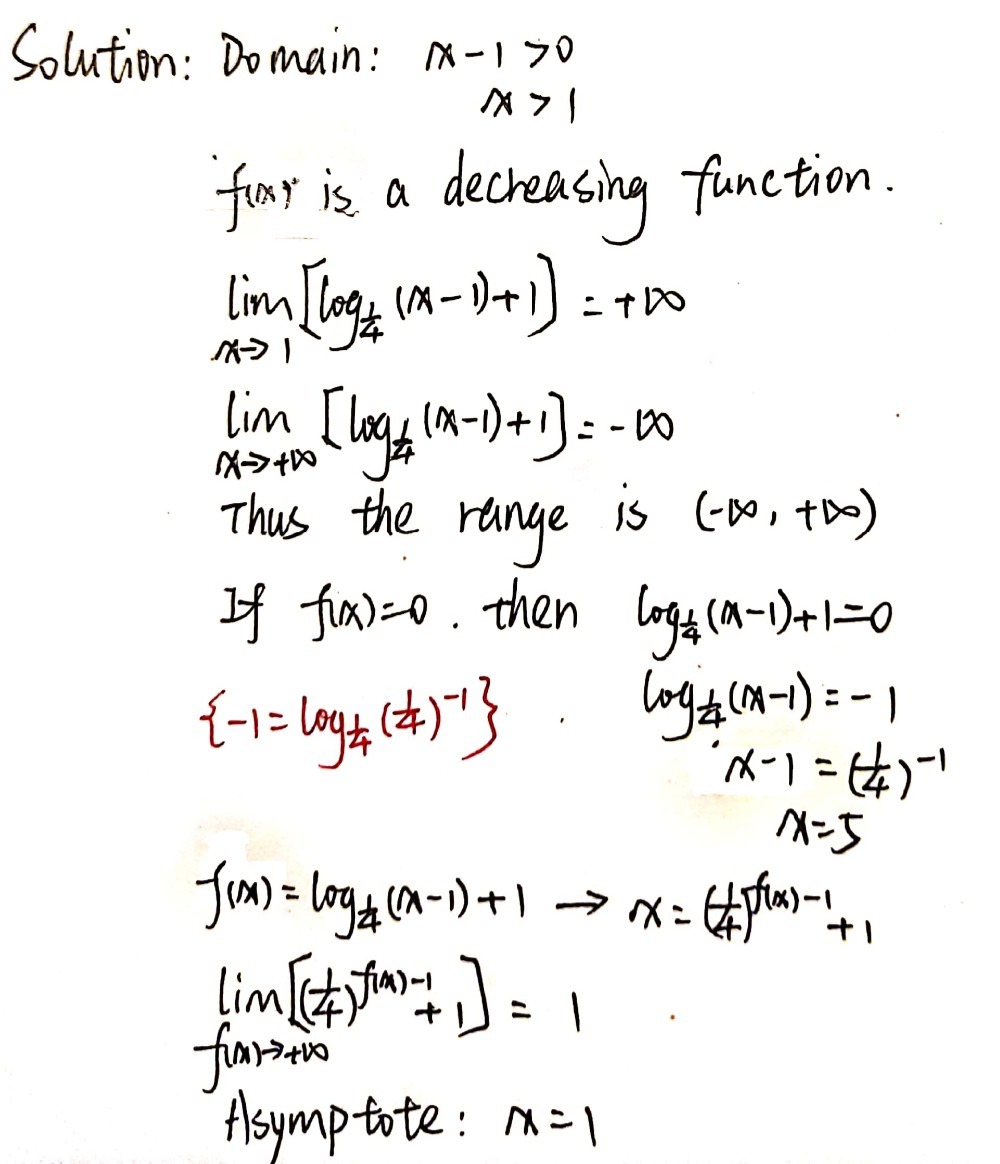 Solution: Domain: x-1>0
x>1
f(x) is a decreasing function.
lim x→1 [log_{1/4} (x-1)+1] = +∞
lim x→+∞ [log_{1/4} (x-1)+1] = -∞
Thus the range is (-∞, +∞)
If f(x)=0. then log_{1/4} (x-1)+1=0
{-1 = log_{1/4} (1/4)^{-1}} log_{1/4} (x-1) = -1
x-1 = (1/4)^{-1}
x=5
f(x) = log_{1/4} (x-1)+1 → x = (1/4)^{f(x)-1} +1
lim f(x)→+∞ [(1/4)^{f(x)-1} +1] = 1
Asymptote: x=1